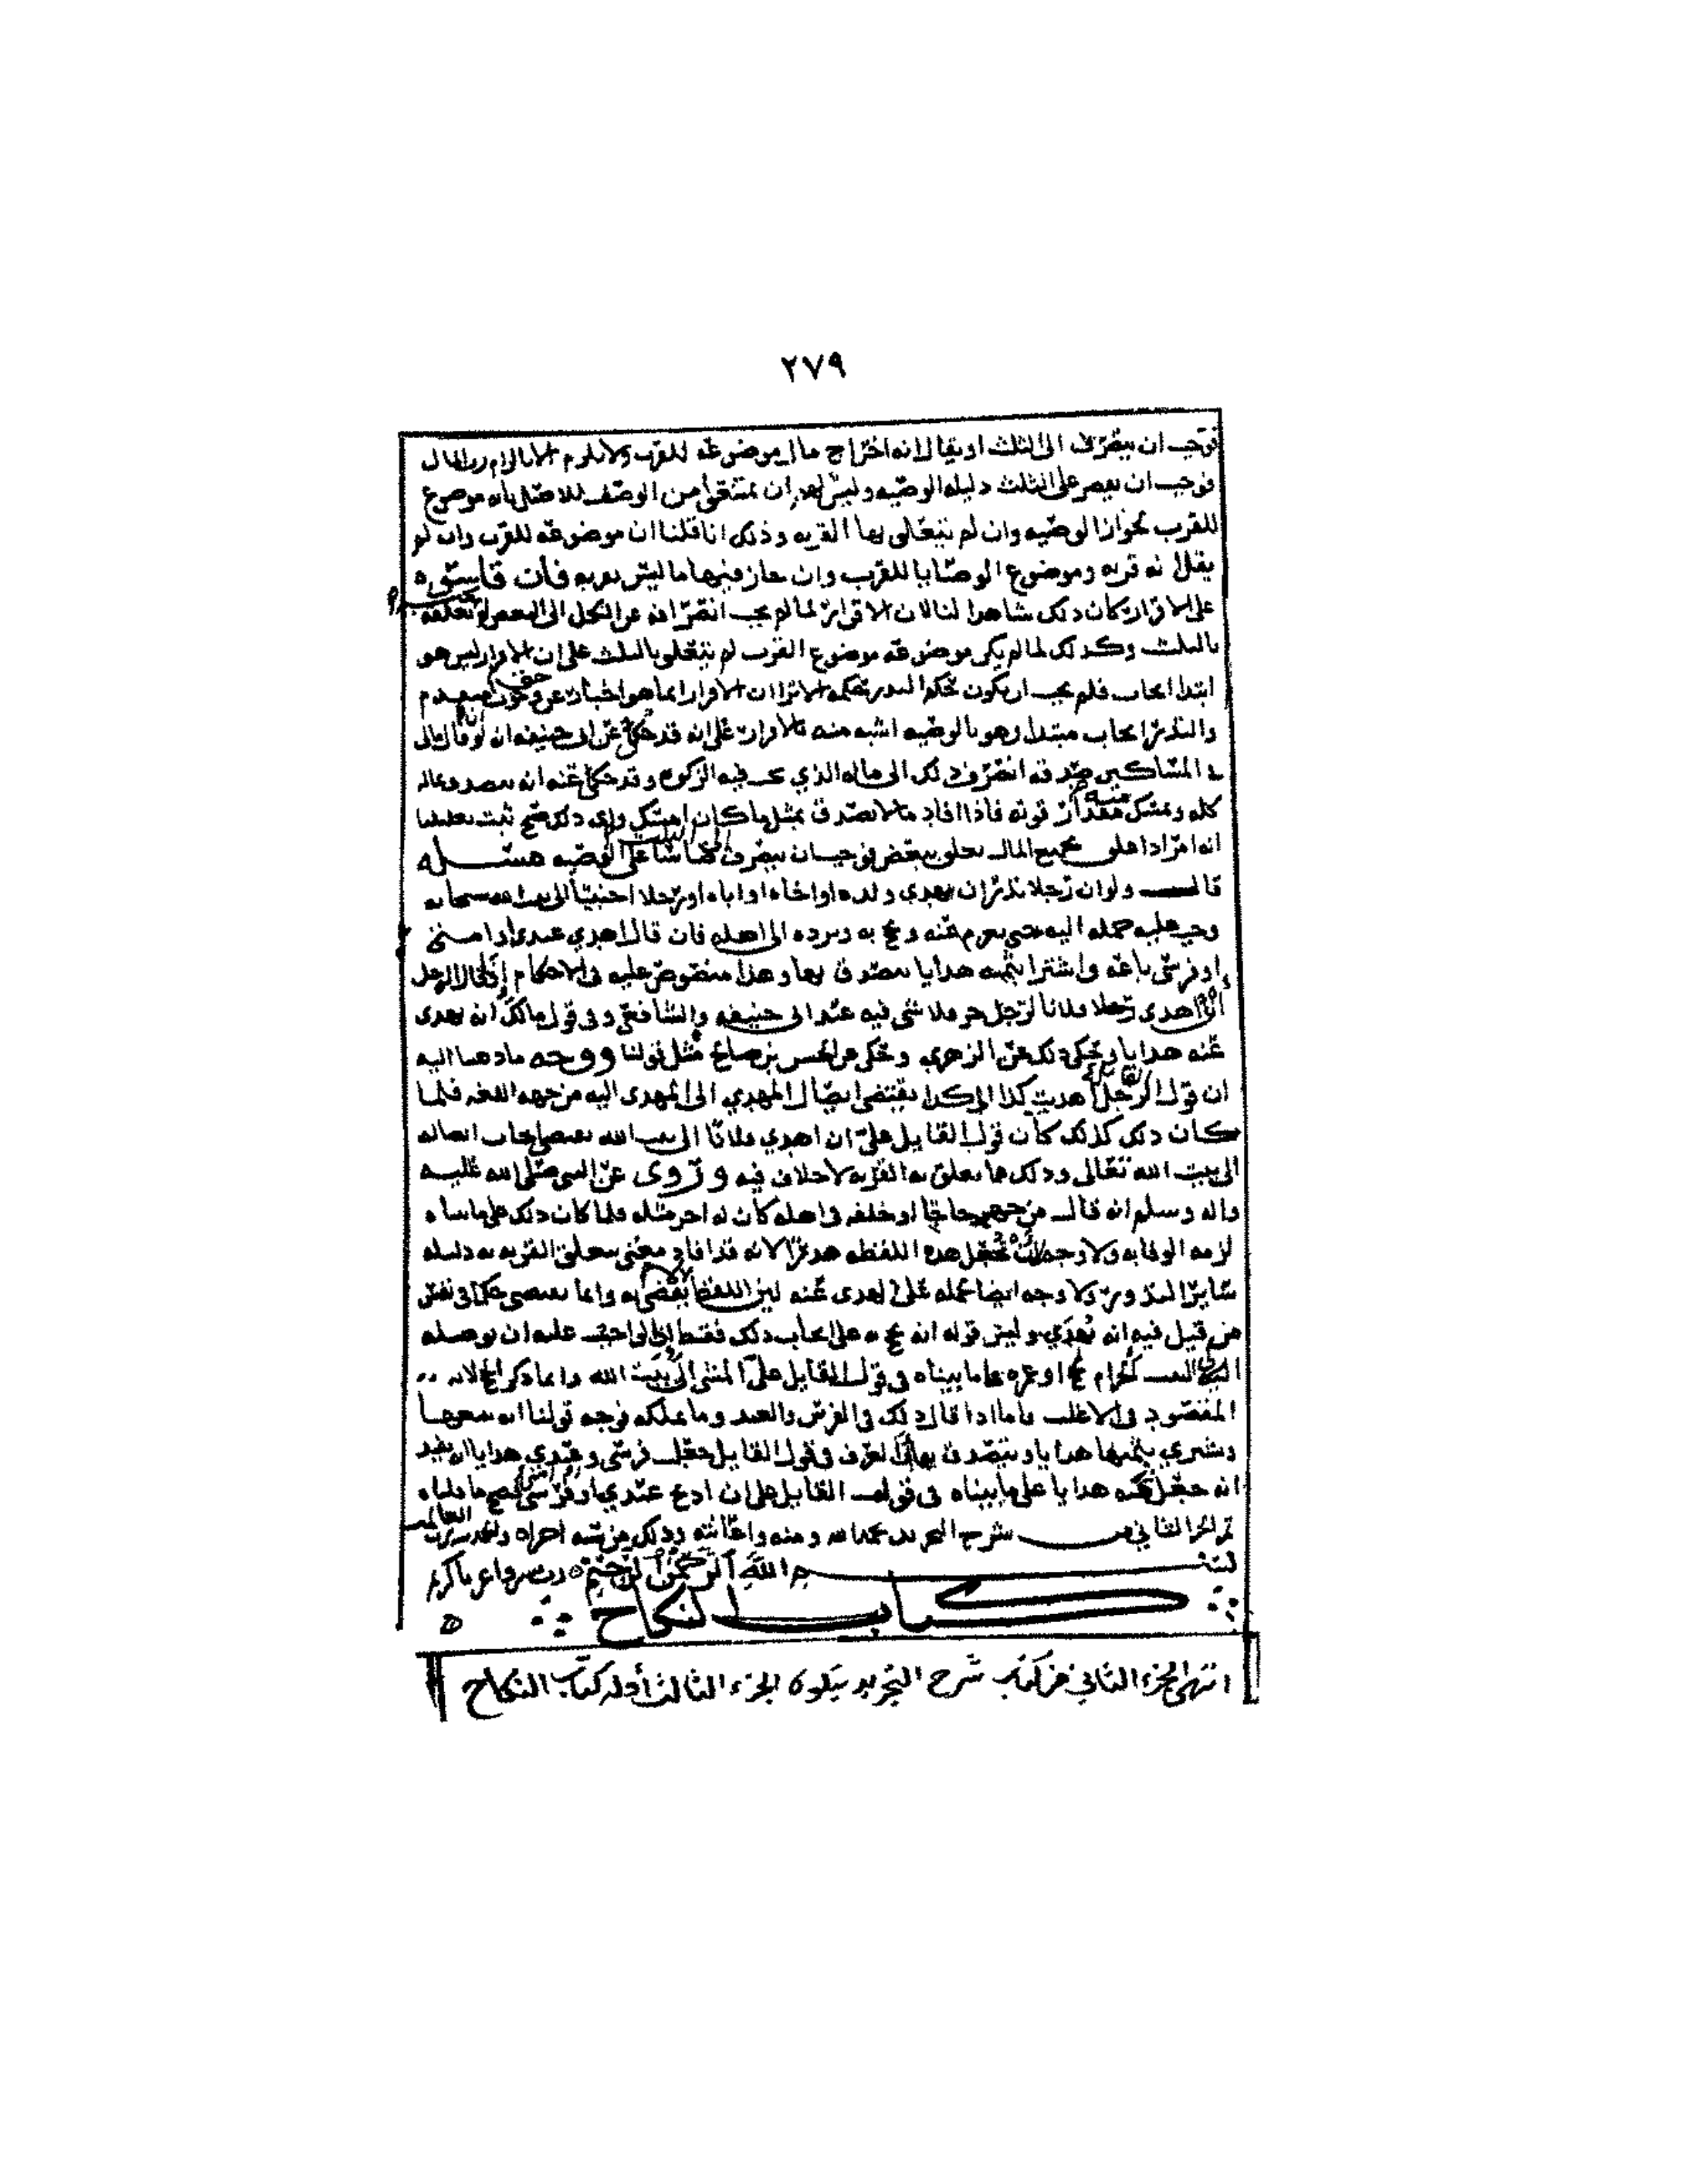 ٢٧٩
فوجب ان ينصرف الى الثلث او يقال انه اخراج مال موضوعه للقرب ولا يلزم الا بالزام رب المال
فوجب ان يقصر على الثلث دليله الوصيه وليس لهم ان يمنعوا من الوصف للاصل بانه موضوع
للقرب لجواز الوصيه وان لم يتعلق بها القربه وذلك انا قلنا ان موضوعه للقرب وان لم
يقل انه قربه وموضوع الوصايا للقرب وان جاز فيها ما ليس بقربه فان قاسوه
على الاقرار كان ذلك شاهدا لنا لان الاقرار لما لم يجب انصرافه عن الكل الى البعض لم يجب تعلقه
بالثلث وكذلك لما لم يكن موضوعه موضوع القرب لم يتعلق بالثلث على ان الاقرار ليس هو
ابتدا ايجاب فلم يجب ان يكون حكم النذر حكمه الا ترا ان الاقرار انما هو اخبار عن وجوب حق متقدم
والنذر ايجاب مبتدا وهو بالوصيه اشبه منه بالاقرار على انه قد حكي عن ابي حنيفه انه لو قال مالي
في المساكين صدقه انصرف ذلك الى ماله الذي تجب فيه الزكوه وقد حكي عنه انه يتصدق بماله
كله ويمسك منه مقدار قوته فاذا افاد مالا تصدق بمثل ما كان امسك واي ذلك صح ثبت تعليلنا
انه امر اذا علق بجميع المال تعلق ببعض فوجب ان ينصرف الى الثلث قياسا على الوصيه مسـله
قال ولو ان رجلا نذر ان يهدي ولده او اخاه او اباه او رجلا اجنبيا الى بيت الله سبحانه
وجب عليه حمله اليه حتى يغرم عنه ويحج به ويرده الى اهله فان قال اهدي عبدي او امتي
او فرسي باعه واشترا بثمنه هدايا يتصدق بها وهذا منصوص عليه في الاحكام اذا قال الرجل
انا اهدي رجلا فلانا لرجل حر فلا شي فيه عند ابي حنيفه والشافعي وفي قول مالك ان يهدي
عنه هدايا وحكي ذلك عن الزهري وحكي عن الحسن بن صالح مثل قولنا ووجه ما ذهبنا اليه
ان قول القائل اهديت كذا الى كذا يقتضي ايصال المهدي الى المهدى اليه من جهه اللغه فلما
كان ذلك كذلك كان قول القايل علي ان اهدي فلانا الى بيت الله يقتضي ايجاب ايصاله
الى بيت الله تعالى وذلك مما يتعلق به القربه لا خلاف فيه وروى عن النبي صلى الله عليه
واله وسلم انه قال من جهز حاجا او خلفه في اهله كان له اجر مثله فلما كان ذلك على ما بيناه
لزمه الوفا به ولا وجه لان تجعل هذه اللفظه هدرا لانه قد افاد معنى يتعلق القربه به دليله
ساير النذور ولا وجه ايضا لحمله على ان يهدى عنه ليس اللفظ يقتضيه وانما يقتضي حكما في نفس
من قيل فيه انه يهدي وليس قوله انه يحج به على ايجاب ذلك فقط اذ الواجب عليه ان يوصله
الى البيت الحرام بحج او عمره كما بيناه في قول القايل علي المشي الى بيت الله وانما ذكر الحج لانه
المقصود في الاغلب فاما اذا قال ذلك في الفرس والعبد وما يملكه فوجه قولنا انه يبيعها
ويشتري بثمنها هدايا ويتصدق بها ان العرف في قول القايل جعلت فرسي وعبدي هدايا انه يفيد
انه جعل ثمنه هدايا على ما بيناه في قول القايل علي ان اذبح عبدي او فرسي فصح ما قلناه
تم الجزء الثاني من شرح التجريد بحمد الله ومنه واعانته وذلك من سته اجزاه والحمد لله رب العالمين
بسم الله الرحمن الرحيم رب يسر واعن ياكريم
كتاب النكاح
انتهى الجزء الثاني من كتاب شرح التجريد يتلوه الجزء الثالث أوله كتاب النكاح